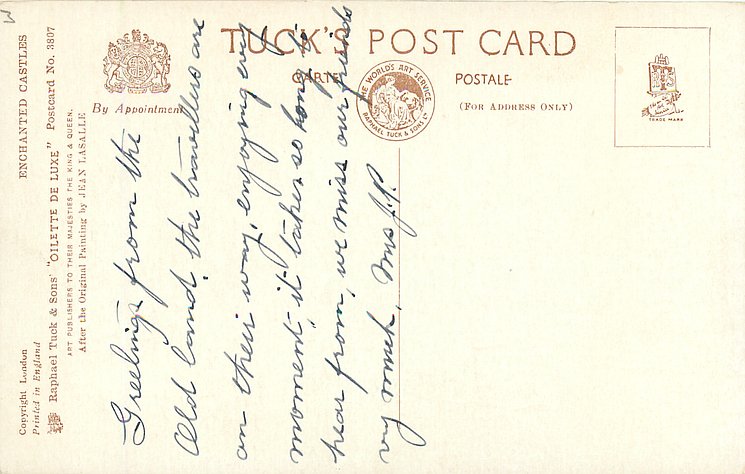 TUCK'S POST CARD
CARTE POSTALE
(FOR ADDRESS ONLY)
By Appointment
THE WORLD'S ART SERVICE
RAPHAEL TUCK & SONS LD
TRADE MARK
Copyright London
Printed in England
ENCHANTED CASTLES
Raphael Tuck & Sons' "OILETTE DE LUXE" Postcard No. 3807
ART PUBLISHERS TO THEIR MAJESTIES THE KING & QUEEN.
After the Original Painting by JEAN LASALLE
Greetings from the
Old land, the travellers are
on their way, enjoying every
moment, it takes so long to
hear from, we miss our friends
very much, Mrs J.P.